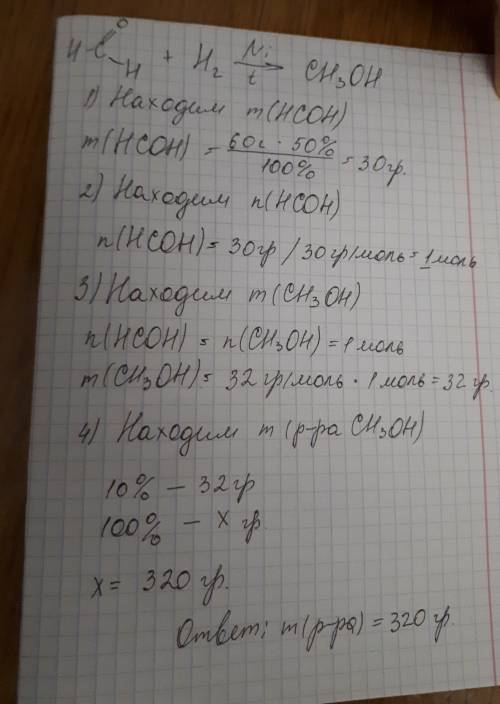 HC
O
H
+ H₂ Ni/t → CH₃OH
1) Находим m(HCOH)
m(HCOH) = 60г · 50% / 100% = 30гр.
2) Находим n(HCOH)
n(HCOH) = 30гр / 30гр/моль = 1моль
3) Находим m(CH₃OH)
n(HCOH) = n(CH₃OH) = 1моль
m(CH₃OH) = 32 гр/моль · 1 моль = 32 гр.
4) Находим m (р-ра CH₃OH)
10% – 32гр
100% – x гр.
x = 320 гр.
Ответ: m(р-ра) = 320 гр.